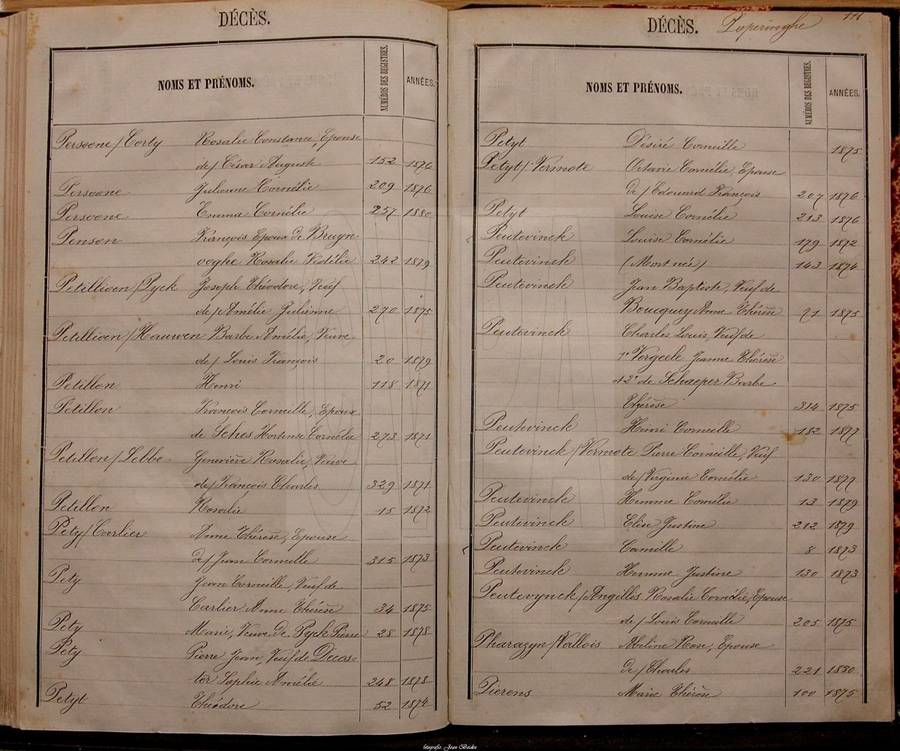 DÉCÈS.
NOMS ET PRÉNOMS. NUMÉROS DES REGISTRES. ANNÉES.
Persoone / Corty Rosalie Constance, Epouse
de / César Auguste 152 1876
Persoone Julienne Cornélie 209 1876
Persoone Emma Cornélie 257 1880
Penson François Epoux de Bruyn
ooghe Rosalie Fidélie 242 1879
Petillioen / Pyck Joseph Théodore, Veuf
de / Amélie Julienne 270 1875
Petillioen / Hauwen Barbe Amélie, Veuve
de / Louis François 20 1879
Petillon Henri 118 1871
Petillon François Corneille, Epoux
de Hortense Cornélie 273 1871
Petillon / Lebbe Geneviève Rosalie, Veuve
de / François Charles 329 1871
Petillon Rosalie 15 1872
Pety / Carlier Anne Thérèse, Epouse
de / Jean Corneille 315 1873
Pety Jean Corneille, Veuf de
Carlier Anne Thérèse 34 1875
Pety Marie, Veuve de Pyck Pierre 28 1878
Pety Pierre Jean, Veuf de Decos
ter Sophie Amélie 248 1878
Petyt Théodore 52 1874
DÉCÈS. Poperinghe
NOMS ET PRÉNOMS. NUMÉROS DES REGISTRES. ANNÉES.
Petyt Désiré Corneille 1875
Petyt / Vermote Octavie Cornélie, Epouse
de / Edouard François 207 1876
Petyt Louise Cornélie 213 1876
Peutevinck Louise Cornélie 179 1872
Peutevinck (Mort né) 143 1874
Peutevinck Jean Baptiste, Veuf de
Boucquey Anne Thérèse 71 1875
Peutevinck Charles Louis, Veuf de
1° Vergeele Jeanne Thérèse
+2° de Schaeper Barbe
Thérèse 314 1875
Peutevinck Henri Corneille 182 1877
Peutevinck / Vermote Pierre Corneille, Veuf
de / Virginie Cornélie 130 1877
Peutevinck Hemme Cornélie 13 1879
Peutevinck Elise Justine 212 1879
Peutevinck Camille 8 1873
Peutevinck Hemme Justine 130 1873
Peutevynck / Angillos Rosalie Cornélie, Epouse
de / Louis Corneille 205 1875
Pharazyn / Vallois Meline Rose, Epouse
de / Charles 221 1880
Pierens Marie Thérèse 100 1875